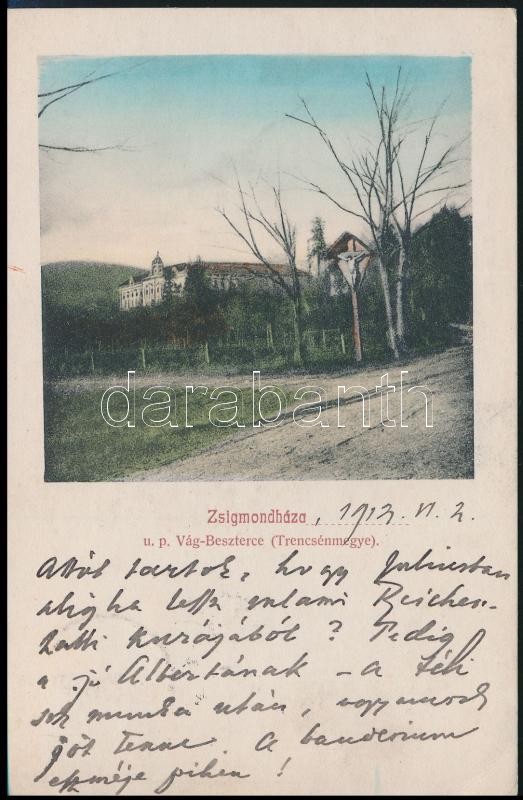 darabanth
Zsigmondháza, 1912. VI. 2.
u. p. Vág-Beszterce (Trencsénmegye).
Attól tartok, hogy Juliusban
aligha lesz valami Reichen-
halli kurájából? Pedig
a jó Albertának – a téli
sok munka után, nagyon
jót tenne. A banderium
eszméje pihen!